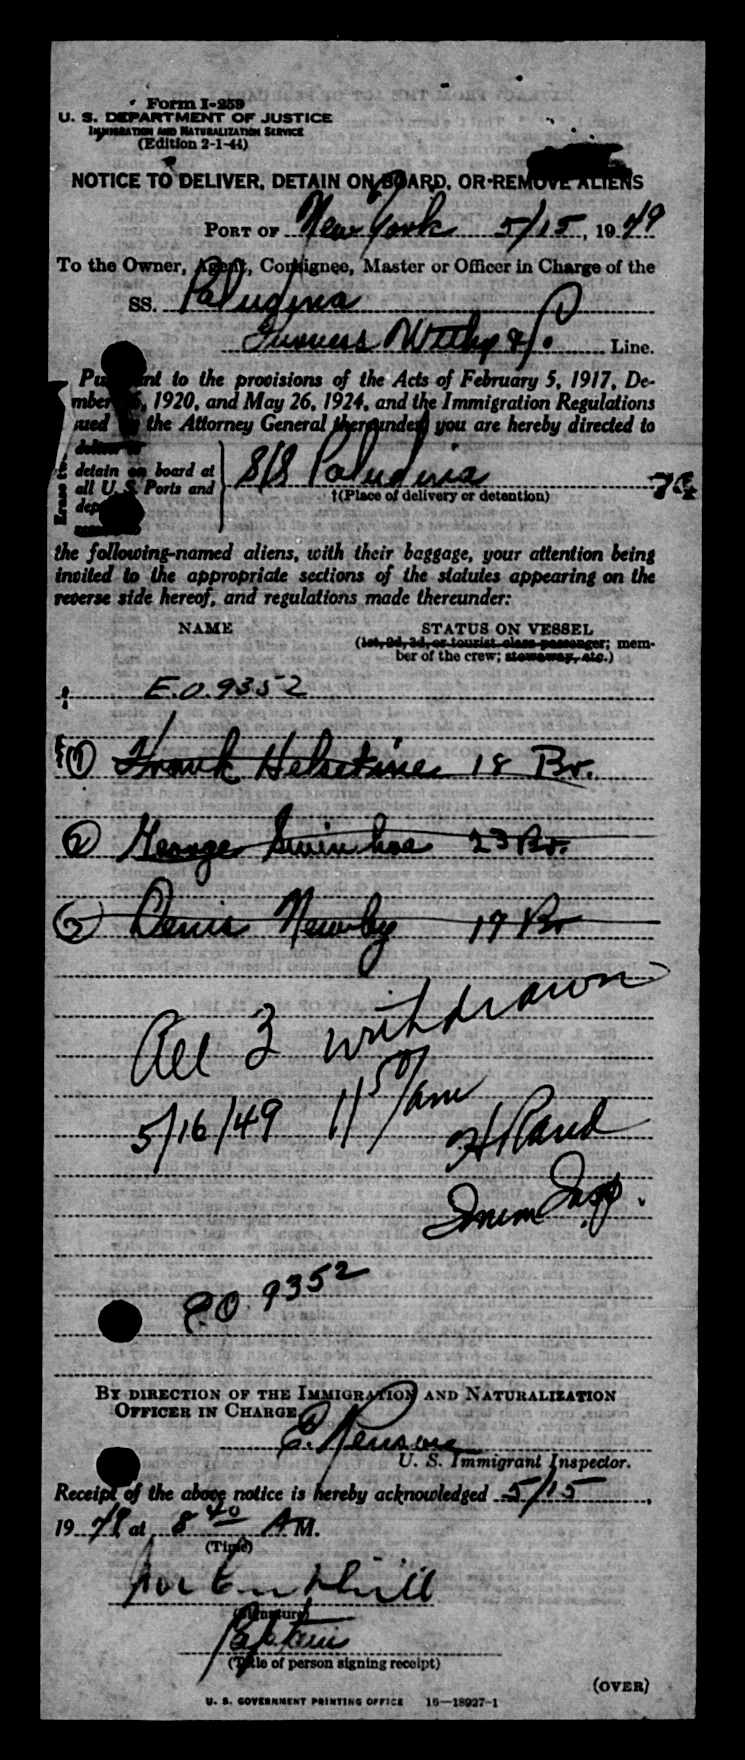 Form I-259
U. S. DEPARTMENT OF JUSTICE
IMMIGRATION AND NATURALIZATION SERVICE
(Edition 2-1-44)
NOTICE TO DELIVER, DETAIN ON BOARD, OR REMOVE ALIENS
PORT OF New York 5/15, 1949
To the Owner, Agent, Consignee, Master or Officer in Charge of the
SS. Paludina
Furness Withy & Co. Line.
Pursuant to the provisions of the Acts of February 5, 1917, De-
mber 26, 1920, and May 26, 1924, and the Immigration Regulations
sued by the Attorney General thereunder, you are hereby directed to
deliver or
detain on board at
all U. S. Ports and
Erase two.
S/S Paludina
†(Place of delivery or detention)
the following-named aliens, with their baggage, your attention being
invited to the appropriate sections of the statutes appearing on the
reverse side hereof, and regulations made thereunder:
NAME STATUS ON VESSEL
(1st, 2d, 3d, or tourist class passenger; mem-
ber of the crew; stowaway, etc.)
E.O. 9352
(1) Frank Helsetine 18 Br.
(2) George Swinhoe 23 Br.
(3) Denis Newby 17 Br
All 3 withdrawn
5/16/49 11 50/am
H Rand
Imm Insp.
E.O. 9352
BY DIRECTION OF THE IMMIGRATION AND NATURALIZATION
OFFICER IN CHARGE
E.
U. S. Immigrant Inspector.
Receipt of the above notice is hereby acknowledged 5/15,
1949 at 8 40 A M.
(Time)
(Signature)
Captain
(Title of person signing receipt)
(OVER)
U. S. GOVERNMENT PRINTING OFFICE 16—18927-1